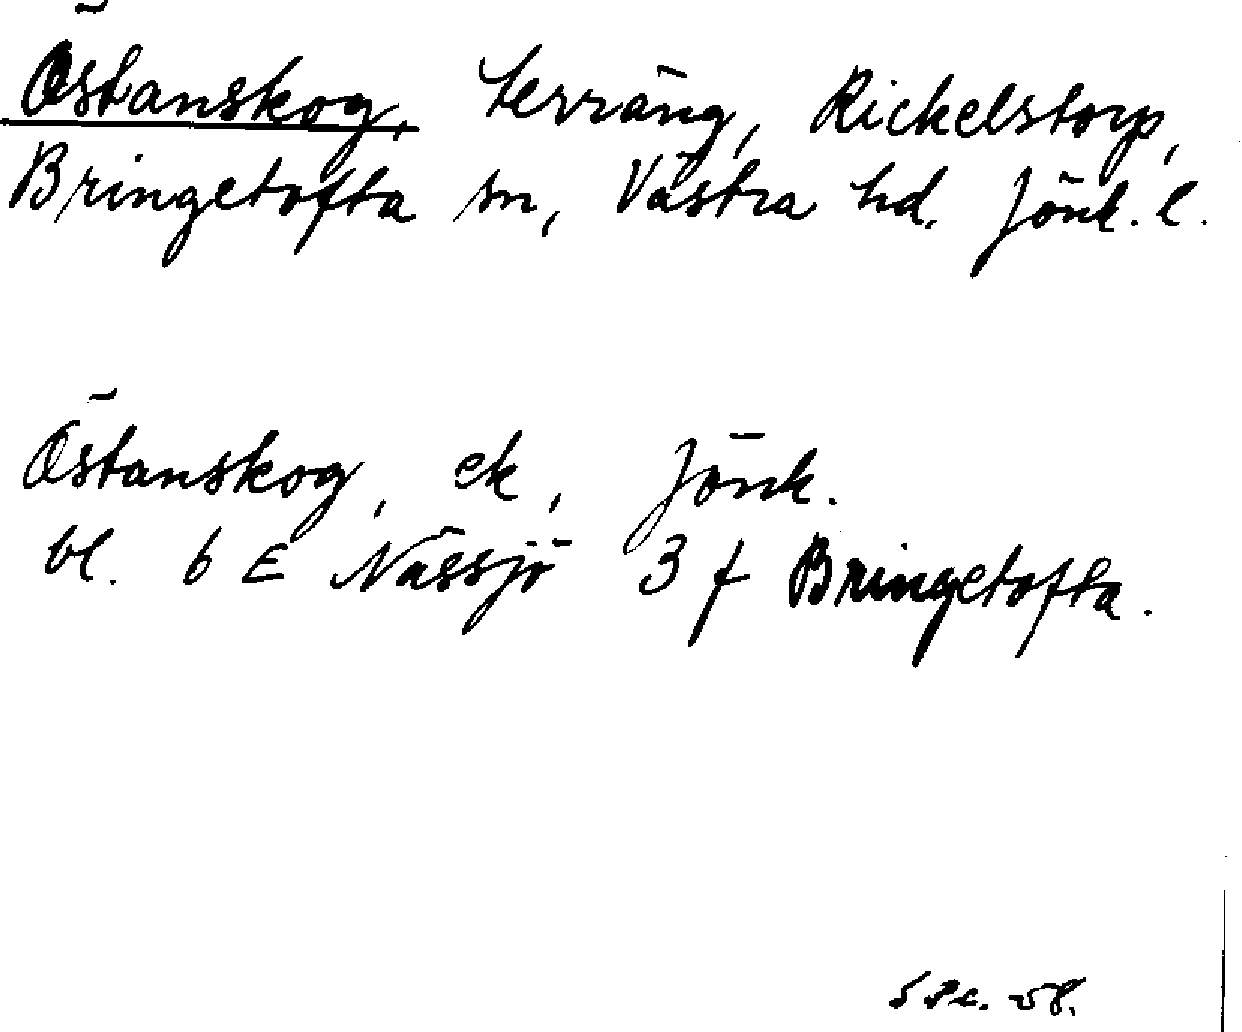 Östanskog, terräng, Rickelstorp,
Bringetofta sn, Västra hd. Jönk. l.
Östanskog, ek, Jönk.
bl. 6 E Nässjö 3 f Bringetofta.